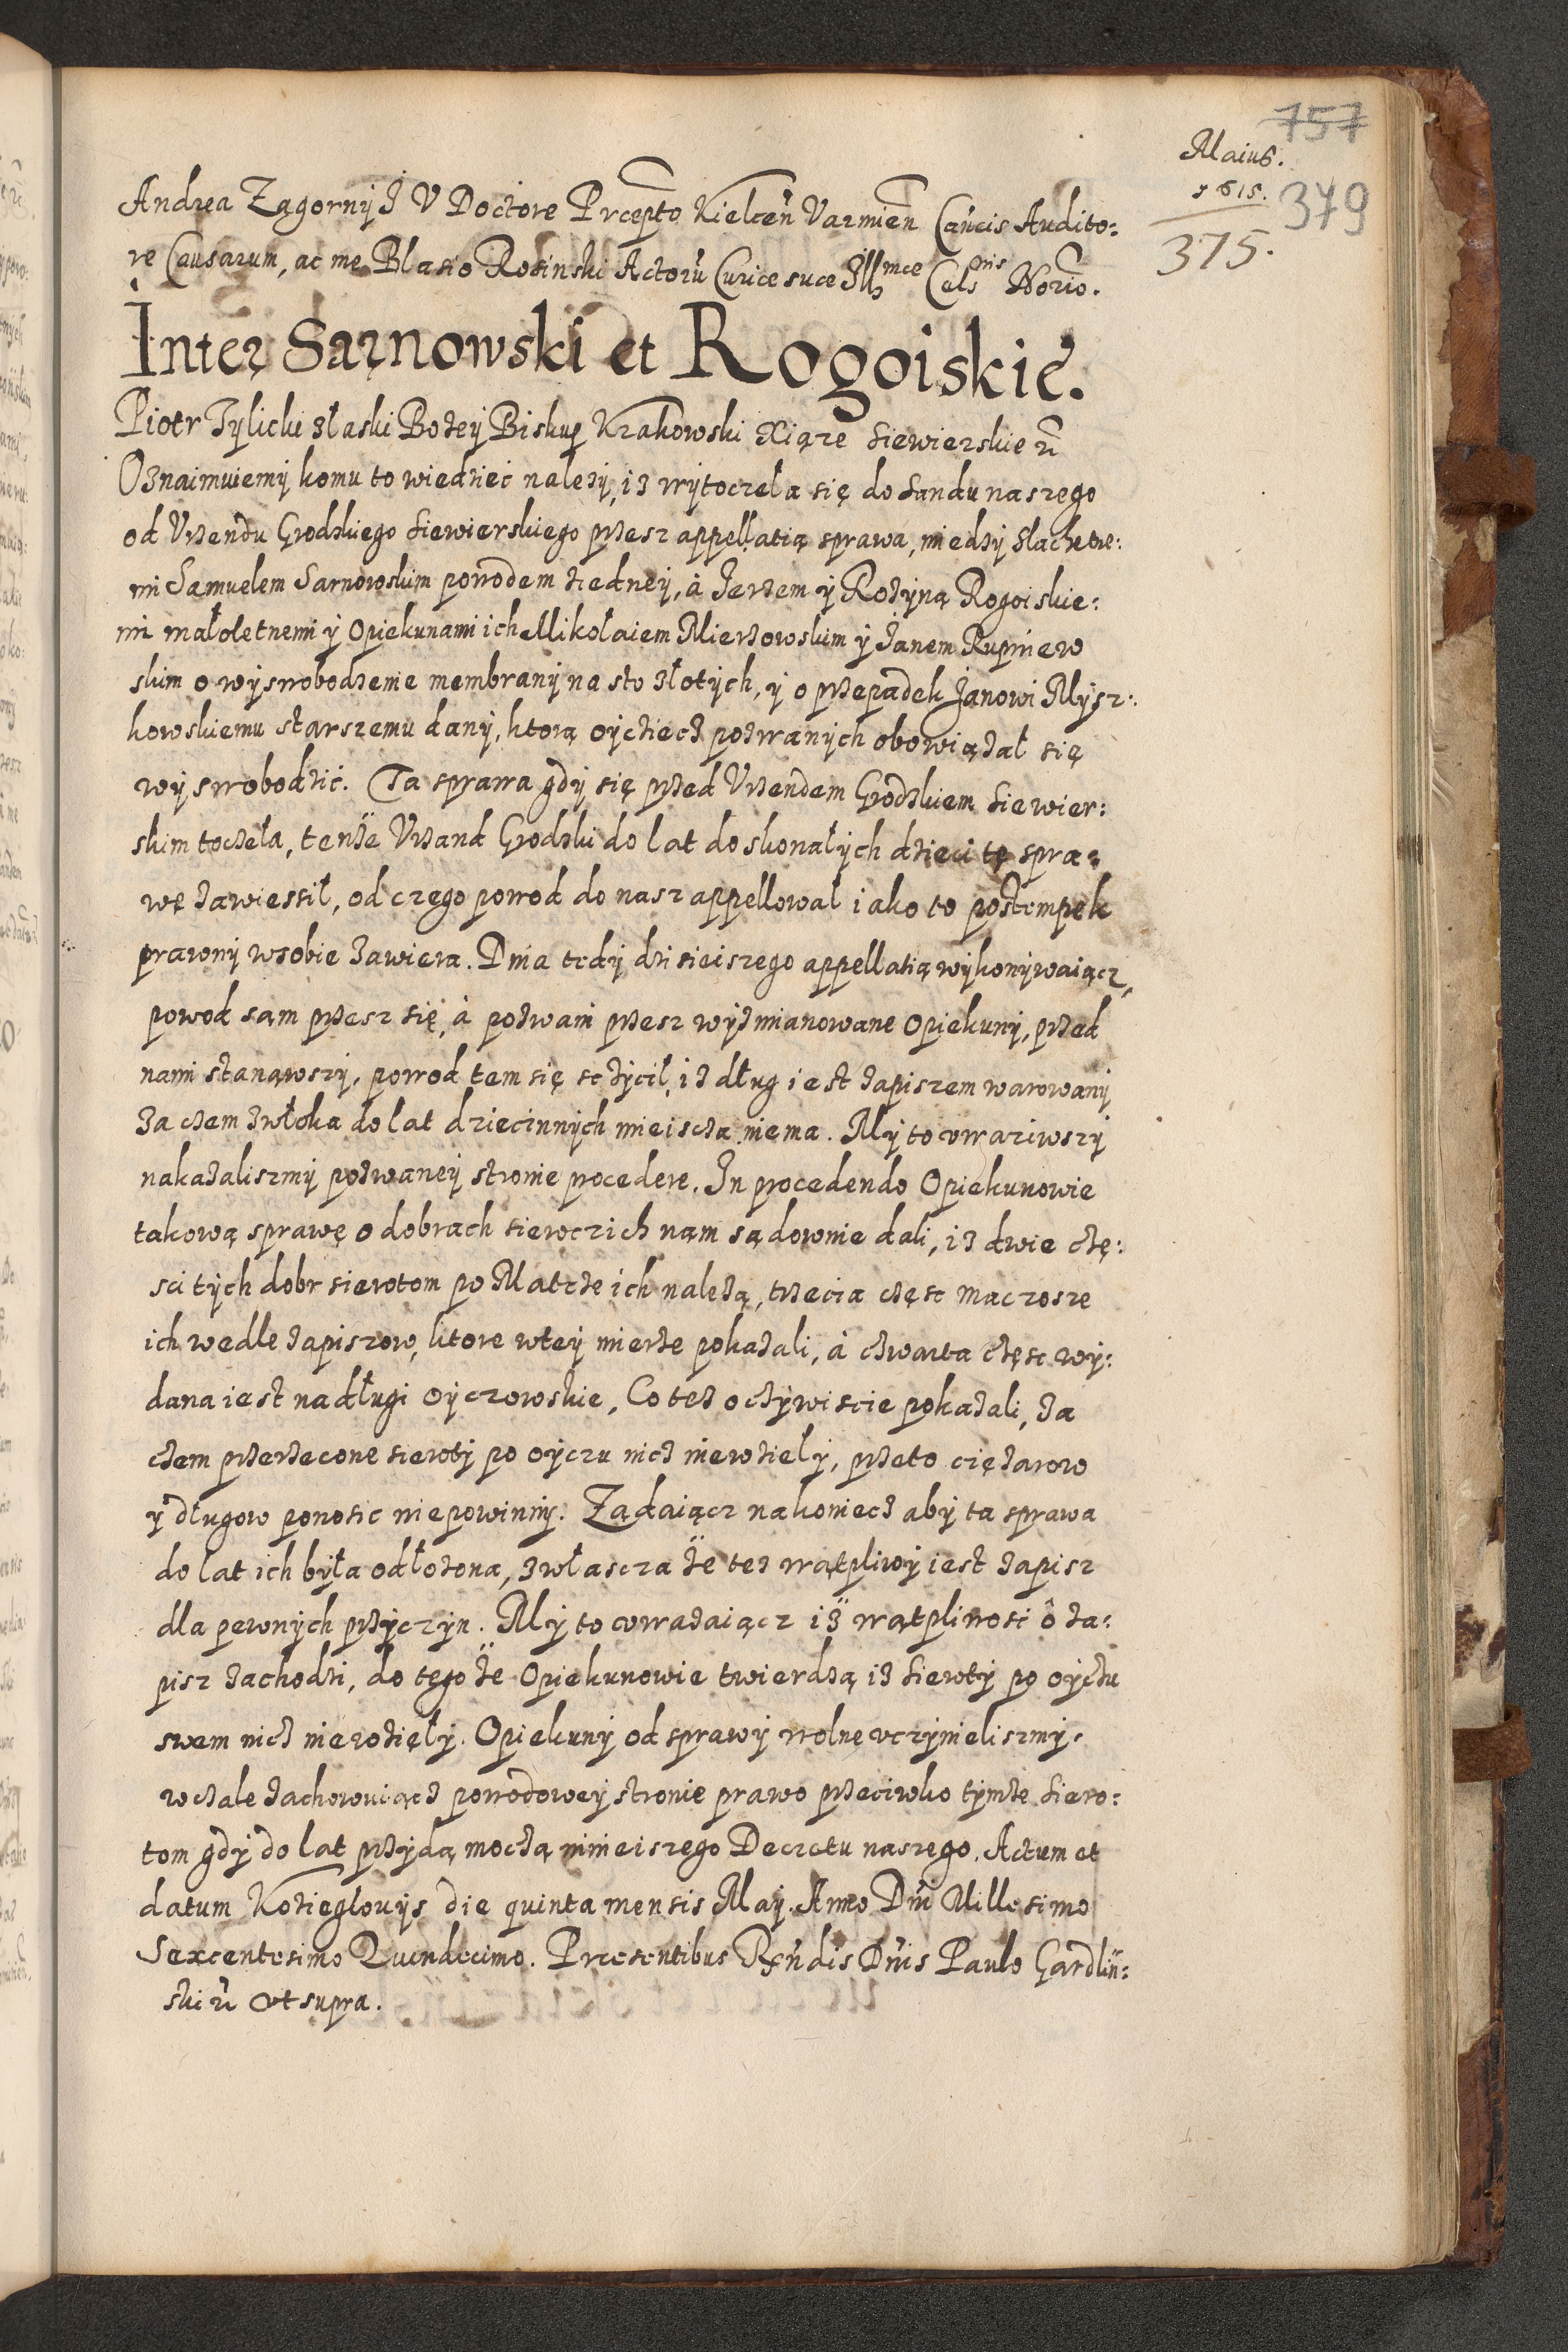 757
Maius.
1615.
379
375.
Andrea Zągorny J V Doctore Præpto Kielceñ Varmieñ Cañcis Audito:
re Causarum, ac me Blasio Rosinski Actorũ Curiæ suæ Illmæ Celsnis Norio.
Inter Sarnowski et Rogoiskie.
Piotr Tylicki złaski Bożey Biskup Krakowski Xiąże Siewierskie ũ
Oznaimuiemy komu to wiedzieć należy, iz wytoczeła się do sandu naszego
od Vrzendu Grodzkiego Siewierskiego przesz appellatią sprawa, miedzy Slachetne:
mi Samuelem Sarnowskim powodem zedney, à Jerzem y Rożyną Rogoiskie:
mi małoletnemi y Opiekunami ich Mikołaiem Mierzowskim y Janem Rupniew
skim o wyswobodzenie membrany na sto złotych, y o przepadek Janowi Mysz:
kowskiemu starszemu dany, ktorą oycziecz pozwanych obowiązał się
wyswobodzić. Ta sprawa gdy się przed Vrzendem Grodzkiem Siewier:
skim toczeła, tenże Vrzand Grodzki do lat doskonałych dzieci tę spra:
wę zawiessił, od czego powod do nasz appellował iako to postempek
prawny wsobie zawiera. Dnia tedy dzisieiszego appellatią wykonywaiącz,
powod sam przesz się, à pozwani przesz wyzmianowane Opiekuny, przed
nami stanąwszy, powod tem się sczycił, iz dług iest zapiszem warowany
Za czem zwłoka do lat dziecinnych mieiscza niema. My to vważiwszy
nakazaliszmy pozwaney stronie procedere. In procedendo Opiekunowie
takową sprawę o dobrach sierczich nąm sądownie dali, iz dwie czę:
sci tych dobr sierotom po Matcze ich należą, trzecia częsc maczosze
ich wedle zapiszow, ktore wtey mierze pokazali, à czwarta częsc wy:
dana iest na długi oyczowskie, Co też oczywiscie pokazali, za
czem przerzecone sieroty po oyczu nicz niewzieły, przeto ciężarow
y długow ponosic niepowinny. Ządaiącz nakoniecz aby ta sprawa
do lat ich była odłożona, zwłascza że tez wątpliwy iest zapisz
dla pewnych przyczyn. My to vważaiącz iż wątpliwosc o za:
pisz zachodzi, do tego że Opiekunowie twierdzą iż sieroty po oyczu
swem nicz niewzięły. Opiekuny od sprawy wolne vczynieliszmy.
wczale zachowuiącz powodowey stronie prawo przeciwko tymże Siero:
tom gdy do lat przydą moczą ninieiszego Decretu naszego. Actum et
datum Kozieglovys die quinta mensis May. Anno Dñi Millesimo
Sexcentesimo Quindecimo. Præsentibus Rñdis Dñis Paulo Gardliń:
ski ũ vt supra.